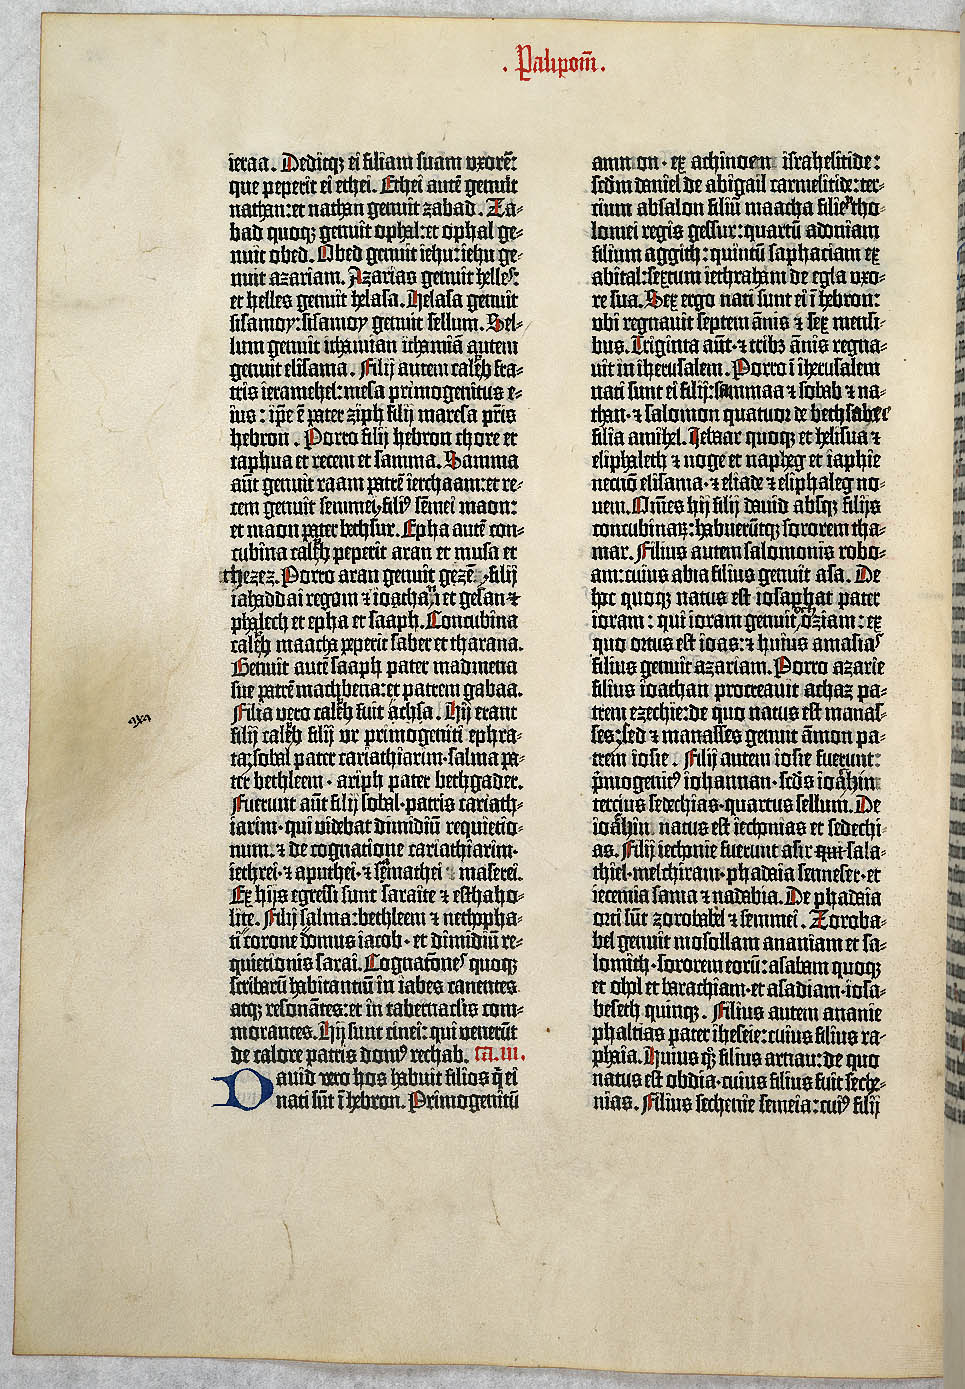 . Palipom̄ .
ieraa. Deditq̨ ei filiam suam uxorē:
que peperit ei ethei. Ethei autē genuit
nathan: et nathan genuit zabad. Za-
bad quoq̨ genuit ophal: et ophal ge-
nuit obed. Obed genuit iehu: iehu ge-
nuit azariam. Azarias genuit helles:
et helles genuit helasa. Helasa genuit
sisamoy: sisamoy genuit sellum. Sel-
lum genuit ichamian ichamiā autem
genuit elisama. Filij autem caleb fra-
tris ieramehel: mesa primogenitus e-
ius: ip̄e ē pater ziph filij maresa pr̄is
hebron. Porro filij hebron chore et
taphua et recem et samma. Samma
aūt genuit raam patrē iercham: et re-
cem genuit semmei, filiꝰ sēmei maon:
et maon pater bethsur. Epha autē con-
cubina caleb peperit aran et musa et
thezez. Porro aran genuit gezē, filij
iahaddai regom ⁊ ioathan et gesan ⁊
phalech et epha et saaph. Concubina
caleb maacha peperit saber et tharana.
Genuit autē saaph pater madmena
sue patrē machbena: et patrem gabaa.
Filia vero caleb fuit achsa. Hij erant
filij caleb filij ur primogeniti ephra-
ta; sobal pater cariathiarim· salma pa-
ter bethleem· ariph pater bethgader.
Fuerunt aūt filij sobal· patris cariath-
iarim· qui videbat dimidiū requietio-
num. ⁊ de cognatione cariathiarim·
iethrei· ⁊ aputhei· ⁊ semathei · maserei.
Ex hijs egressi sunt saraite ⁊ esthaho-
lite. Filij salma: bethleem ⁊ nethopha-
ti corone domus iacob· et dimidiū re-
quietionis sarai. Cognatōnes quoq̨
scribarū habitantiū in iabes canentes
atq̨ resonātes: et in tabernaclis com-
morantes. Hij sunt cinei: qui venerūt
de calore patris domꝰ rechab. ca. iii.
David vero hos habuit filios q̄ ei
nati sūt ī hebron. Primogenitū
amn on· ex achinoem israhelitide:
scdm daniel de abigail carmelitide: ter-
cium absalon filiū maacha filie tho-
lomei regis gessur: quartū adoniam
filium aggith: quintū saphaciam ex
abital: sextum iethraham de egla uxo-
re sua. Sex ergo nati sunt ei ī hebron:
ubi regnavit septem ānis ⁊ sex mensi-
bus. Triginta aūt· ⁊ tribꝫ ānis regna-
vit in iherusalem. Porro ī iherusalem
nati sunt ei filij: sammaa ⁊ sobab ⁊ na-
than· ⁊ salomon quatuor de bethsabee
filia amihel. Jebaar quoq̨ et helisua ⁊
eliphaleth ⁊ noge et napheg et iaphie
necnō elisama· ⁊ eliade ⁊ eliphaleg no-
uem. Om̄es hij filij david absq̨ filijs
concubinaꝝ: habuerūtq̨ sororem tha-
mar. Filius autem salomonis robo-
am: cuius abia filius genuit asa. De
hoc quoq̨ natus est iosaphat pater
ioram: qui ioram genuit oziam: ex
quo ortus est ioas: ⁊ huius amasias
filius genuit azariam. Porro azarie
filius ioathan procreavit achaz pa-
trem ezechie: de quo natus est manas-
ses; sed ⁊ manasses genuit āmon pa-
trem iosie. Filij autem iosie fuerunt:
p̄mogenitꝰ iohannan· scds ioachin
tercius sedechias· quartus sellum. De
ioachin natus est iechonias et sedechi-
as. Filij iechonie fuerunt asir sala-
thiel· melchiram· phadaia senneser· et
iecemia sama ⁊ nadabia. De phadaia
orti sūt zorobabel ⁊ semmei. Zoroba-
bel genuit mosollam ananiam et sa-
lomith· sororem eorū: asabam quoq̨
et ohol et barachiam· et asadiam· iosa-
beseth quinq̨. Filius autem ananie
phaltias pater iheseie: cuius filius ra-
phaia. Huius qq̄ filius arnan: de quo
natus est obdia· cuius filius fuit seche-
nias. Filius sechenie semeia: cuiꝰ filij